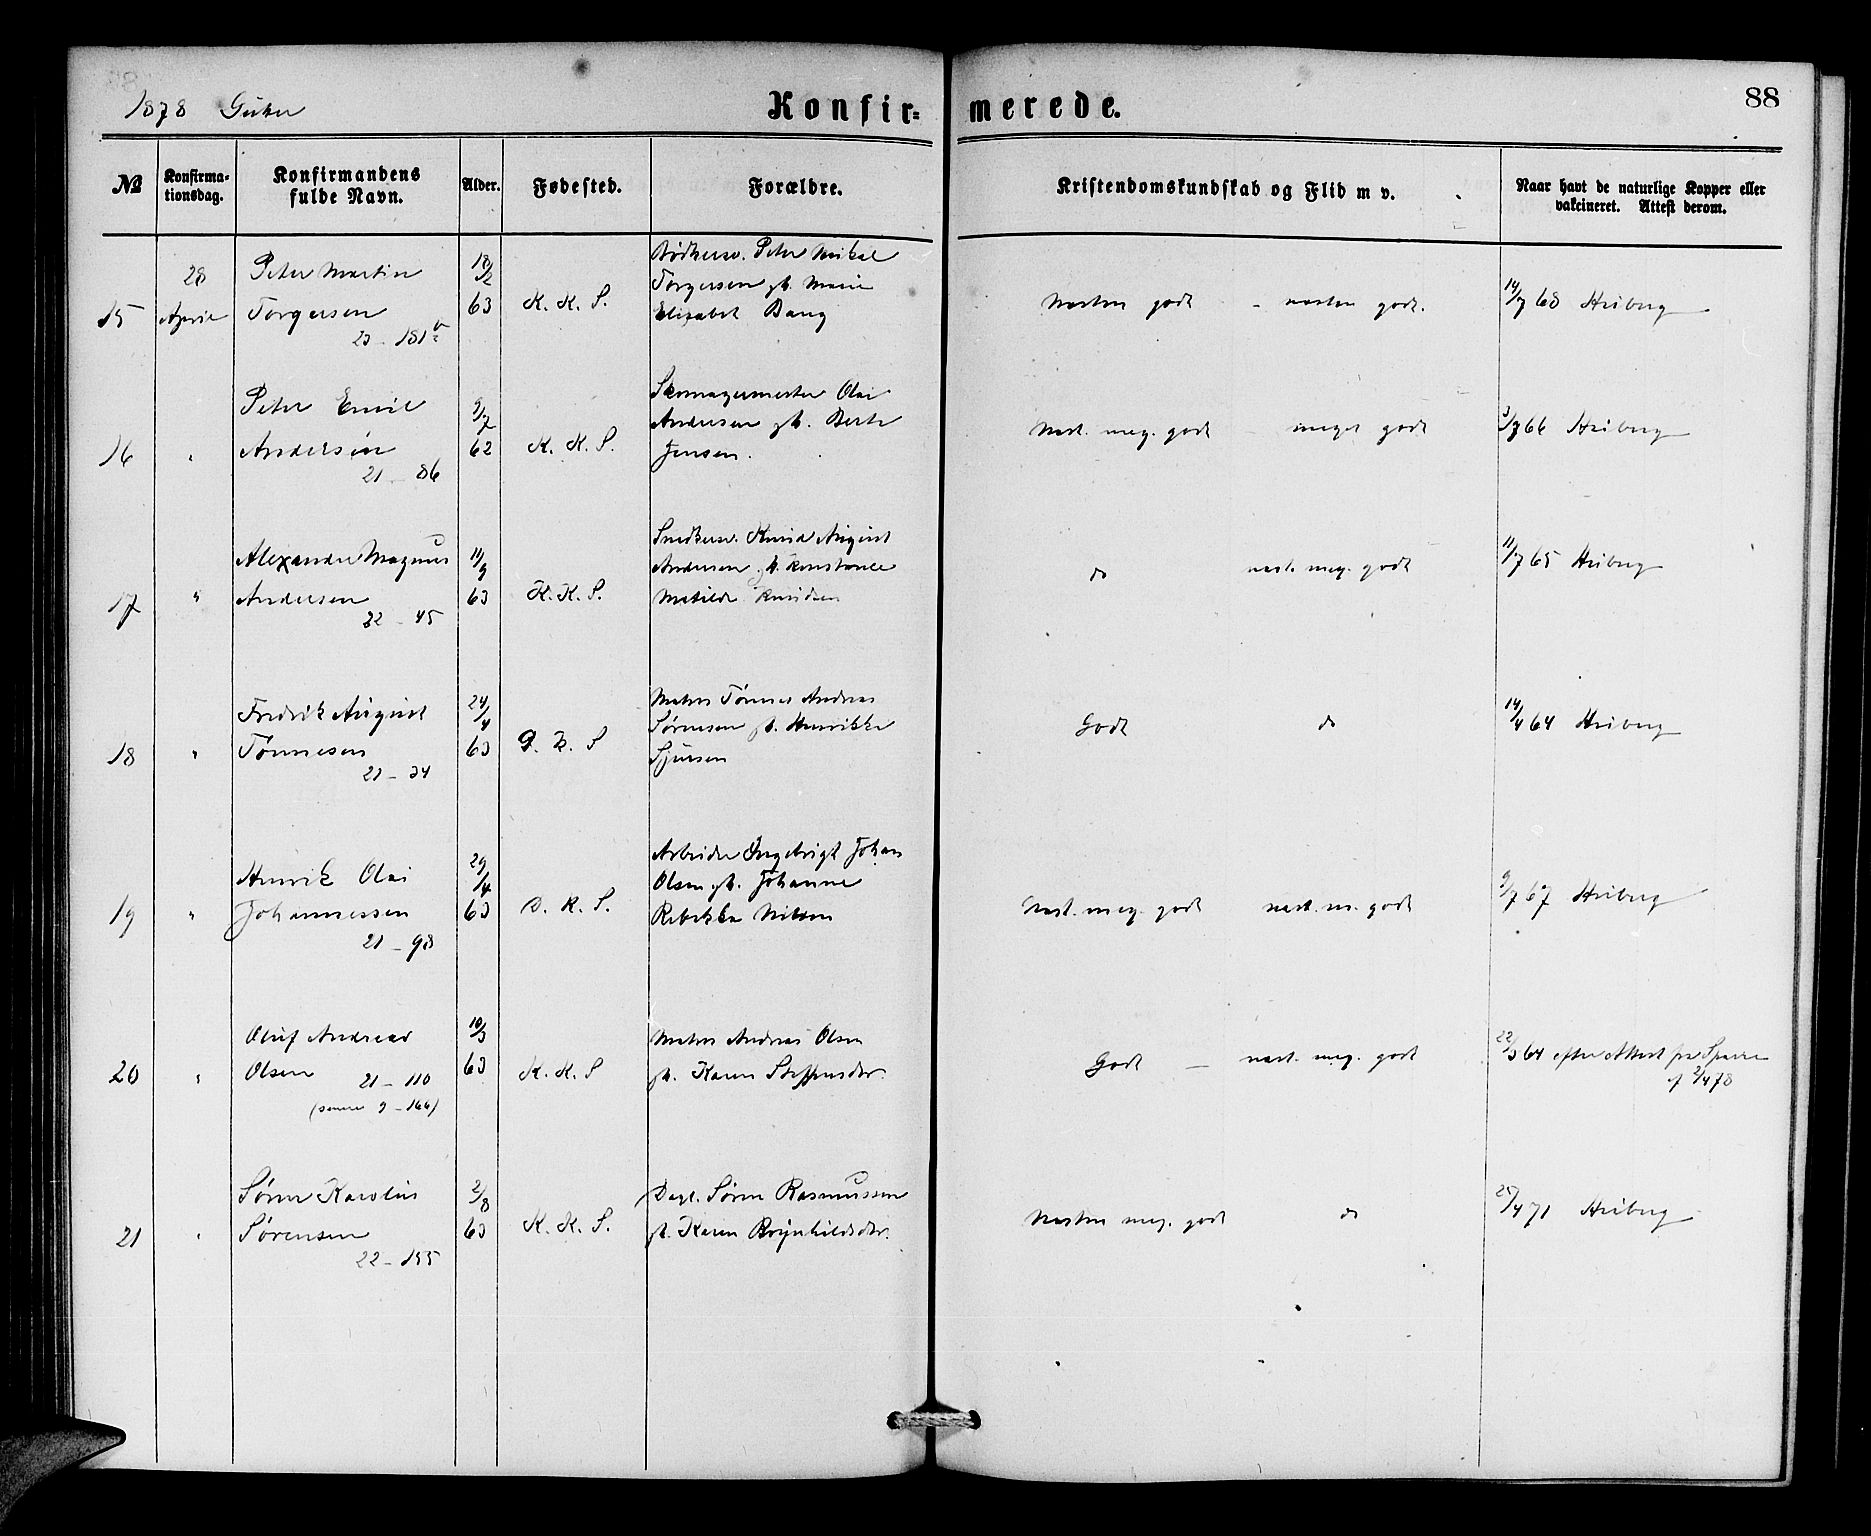 1878 Gutter
Konfir=
merede.
88
№
Konfirma-
tionsdag.
Konfirmandens
fulde Navn.
Alder.
Fødested.
Forældre.
Kristendomskundskab og Flid m v.
Naar havt de naturlige Kopper eller
vakcineret. Attest derom.
15
28
April
Peter Martin
Torgersen
18/2
63
K. K. S.
Peter Mikal
Torgersen gb. Marie
Elisabet Bang
Næsten godt - næsten godt.
14/7 68 Heiberg
16
"
Peter Emil
Andersen
21 - 86
9/7
62
K. K. S.
Skomagermester Olai
Andersen gb. Berte
Jensen.
Næst. meg. godt - meget godt
3/7 66 Heiberg
17
"
Alexander Magnus
Andersen
22 - 45
11/9
63
K. K. S.
Snedkersv. Knud August
Andersen gb. Konstance
Matilde Knudsen
do
næst. meg. godt
11/7 65 Heiberg
18
"
Fredrik August
Tønnesen
21 - 34
24/4
63
D. K. S
Matros Tønnes Andreas
Sørnesen gb. Henrikke
Sjursen
Godt
do
14/4 64 Heiberg
19
"
Henrik Olai
Johannessen
21 - 98
29/4
63
D. K. S.
Arbeider Ingebrigt Johan
Olsen gb. Johanne
Rebekka Nilsen
Næst. meg. godt
næst. m. godt
9/7 67 Heiberg
20
"
Oluf Andreas
Olsen 21 - 110
(samme 9 - 166)
10/3
63
K. K. S
Matros Andreas Olsen
gb. Karen Steffensdtr.
Godt — næst. meg. godt
22/3 64 efter Attest fra Sparre
af 2/4 78
21
"
Søren Karolius
Sørensen
22 - 155
2/8
63
K. K. S.
Dagl. Søren Rasmussen
gb. Karen Brynhildsdtr.
Næsten meg. godt
do
25/4 71 Heiberg